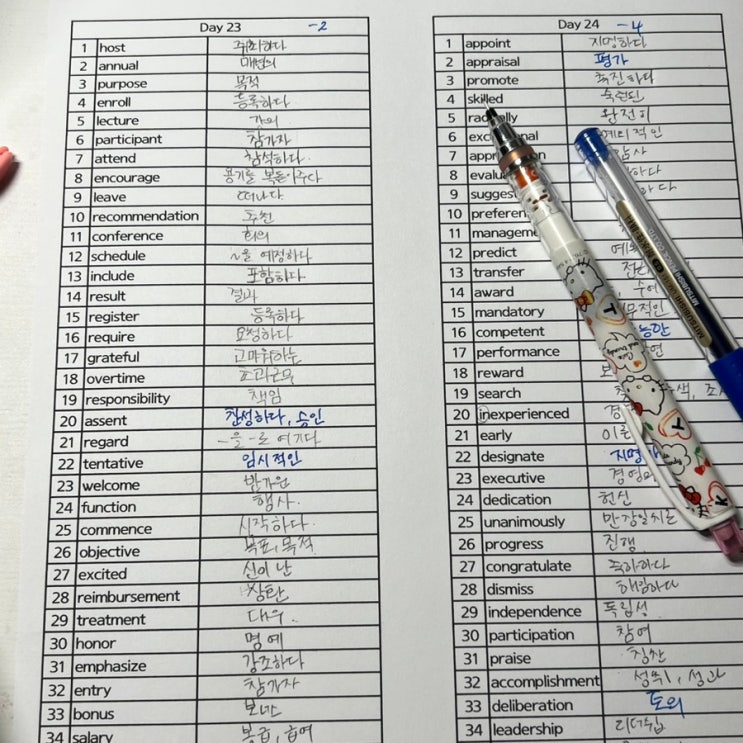 Day 23 -2
1 host 주최하다
2 annual 매년의
3 purpose 목적
4 enroll 등록하다
5 lecture 강의
6 participant 참가자
7 attend 참석하다.
8 encourage 용기를 북돋아주다
9 leave 떠나다
10 recommendation 추천
11 conference 회의
12 schedule ~을 예정하다
13 include 포함하다.
14 result 결과
15 register 등록하다
16 require 요청하다
17 grateful 고마워하는
18 overtime 초과근무
19 responsibility 책임
20 assent 찬성하다, 승인
21 regard ~을 ~로 여기다
22 tentative 임시적인
23 welcome 반가운
24 function 행사.
25 commence 시작하다.
26 objective 목표, 목적
27 excited 신이 난
28 reimbursement 상환
29 treatment 대우.
30 honor 명예
31 emphasize 강조하다
32 entry 참가자
33 bonus 보너스
34 salary 봉급, 급여
Day 24 -4
1 appoint 지명하다
2 appraisal 평가
3 promote 촉진하다
4 skilled 숙련된
5 완전히
6
7
8
9
10
11
12 predict
13 transfer
14 award
15 mandatory
16 competent
17 performance
18 reward
19 search
20 inexperienced
21 early
22 designate
23 executive
24 dedication 헌신
25 unanimously 만장일치로
26 progress 진행
27 congratulate 축하하다
28 dismiss 해임하다
29 independence 독립성
30 participation 참여
31 praise 칭찬
32 accomplishment 성취, 성과
33 deliberation 토의
34 leadership 리더십